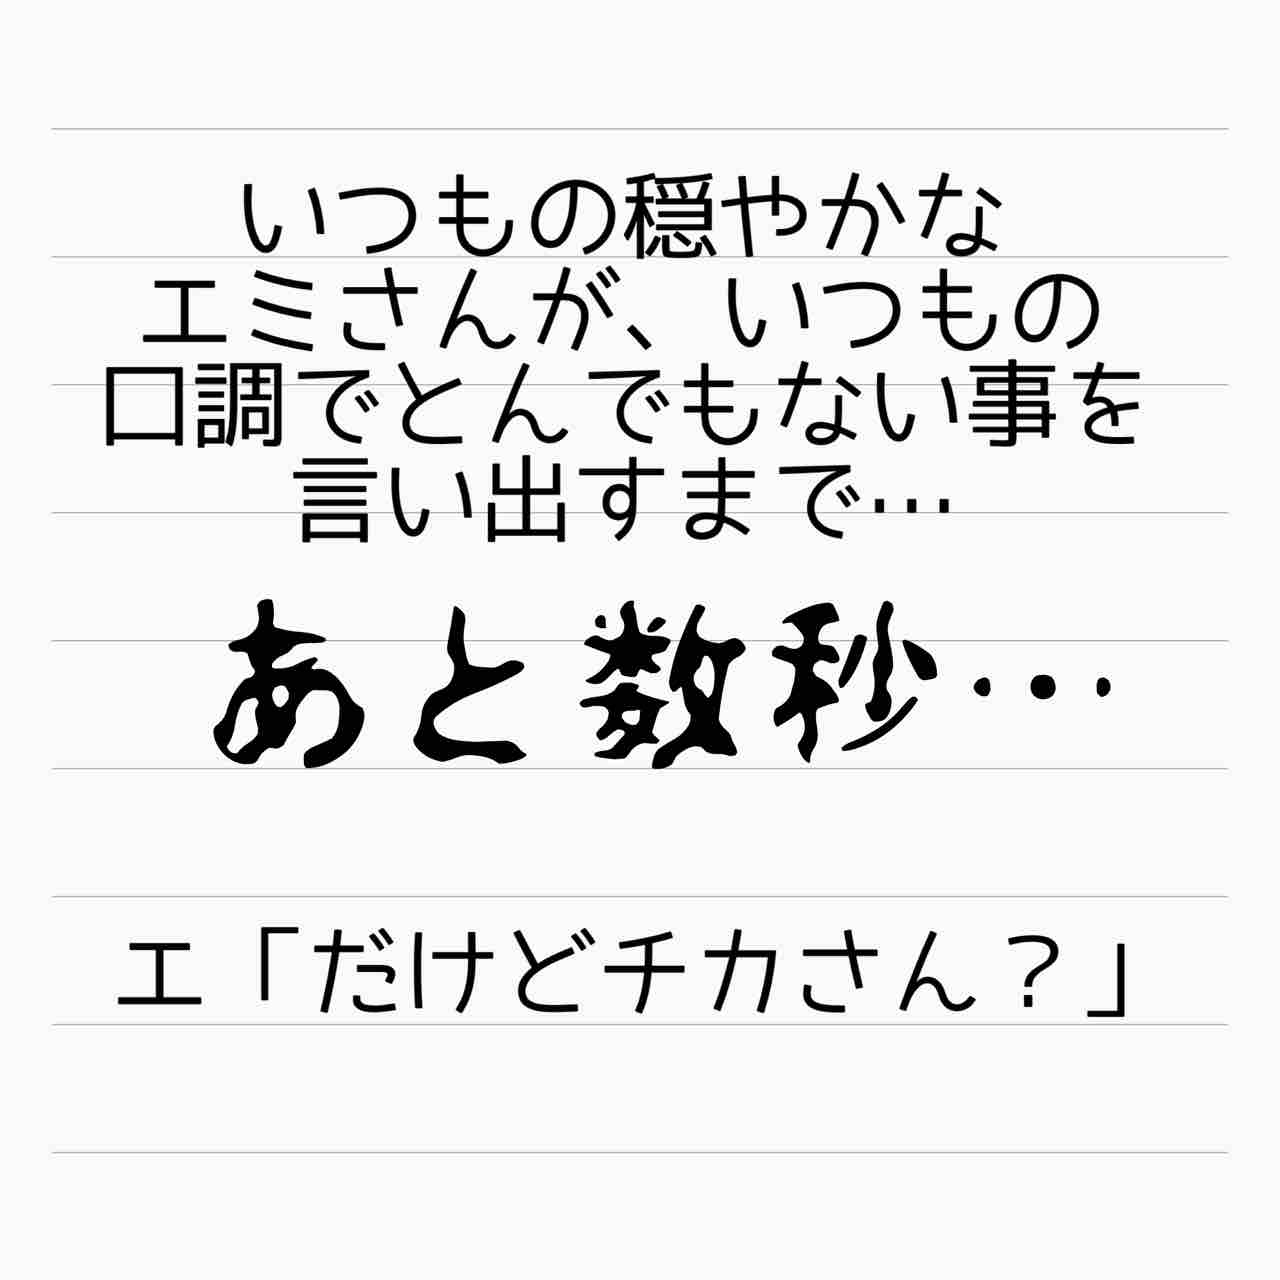 いつもの穏やかな
エミさんが、いつもの
口調でとんでもない事を
言い出すまで…
あと数秒…
エ「だけどチカさん？」